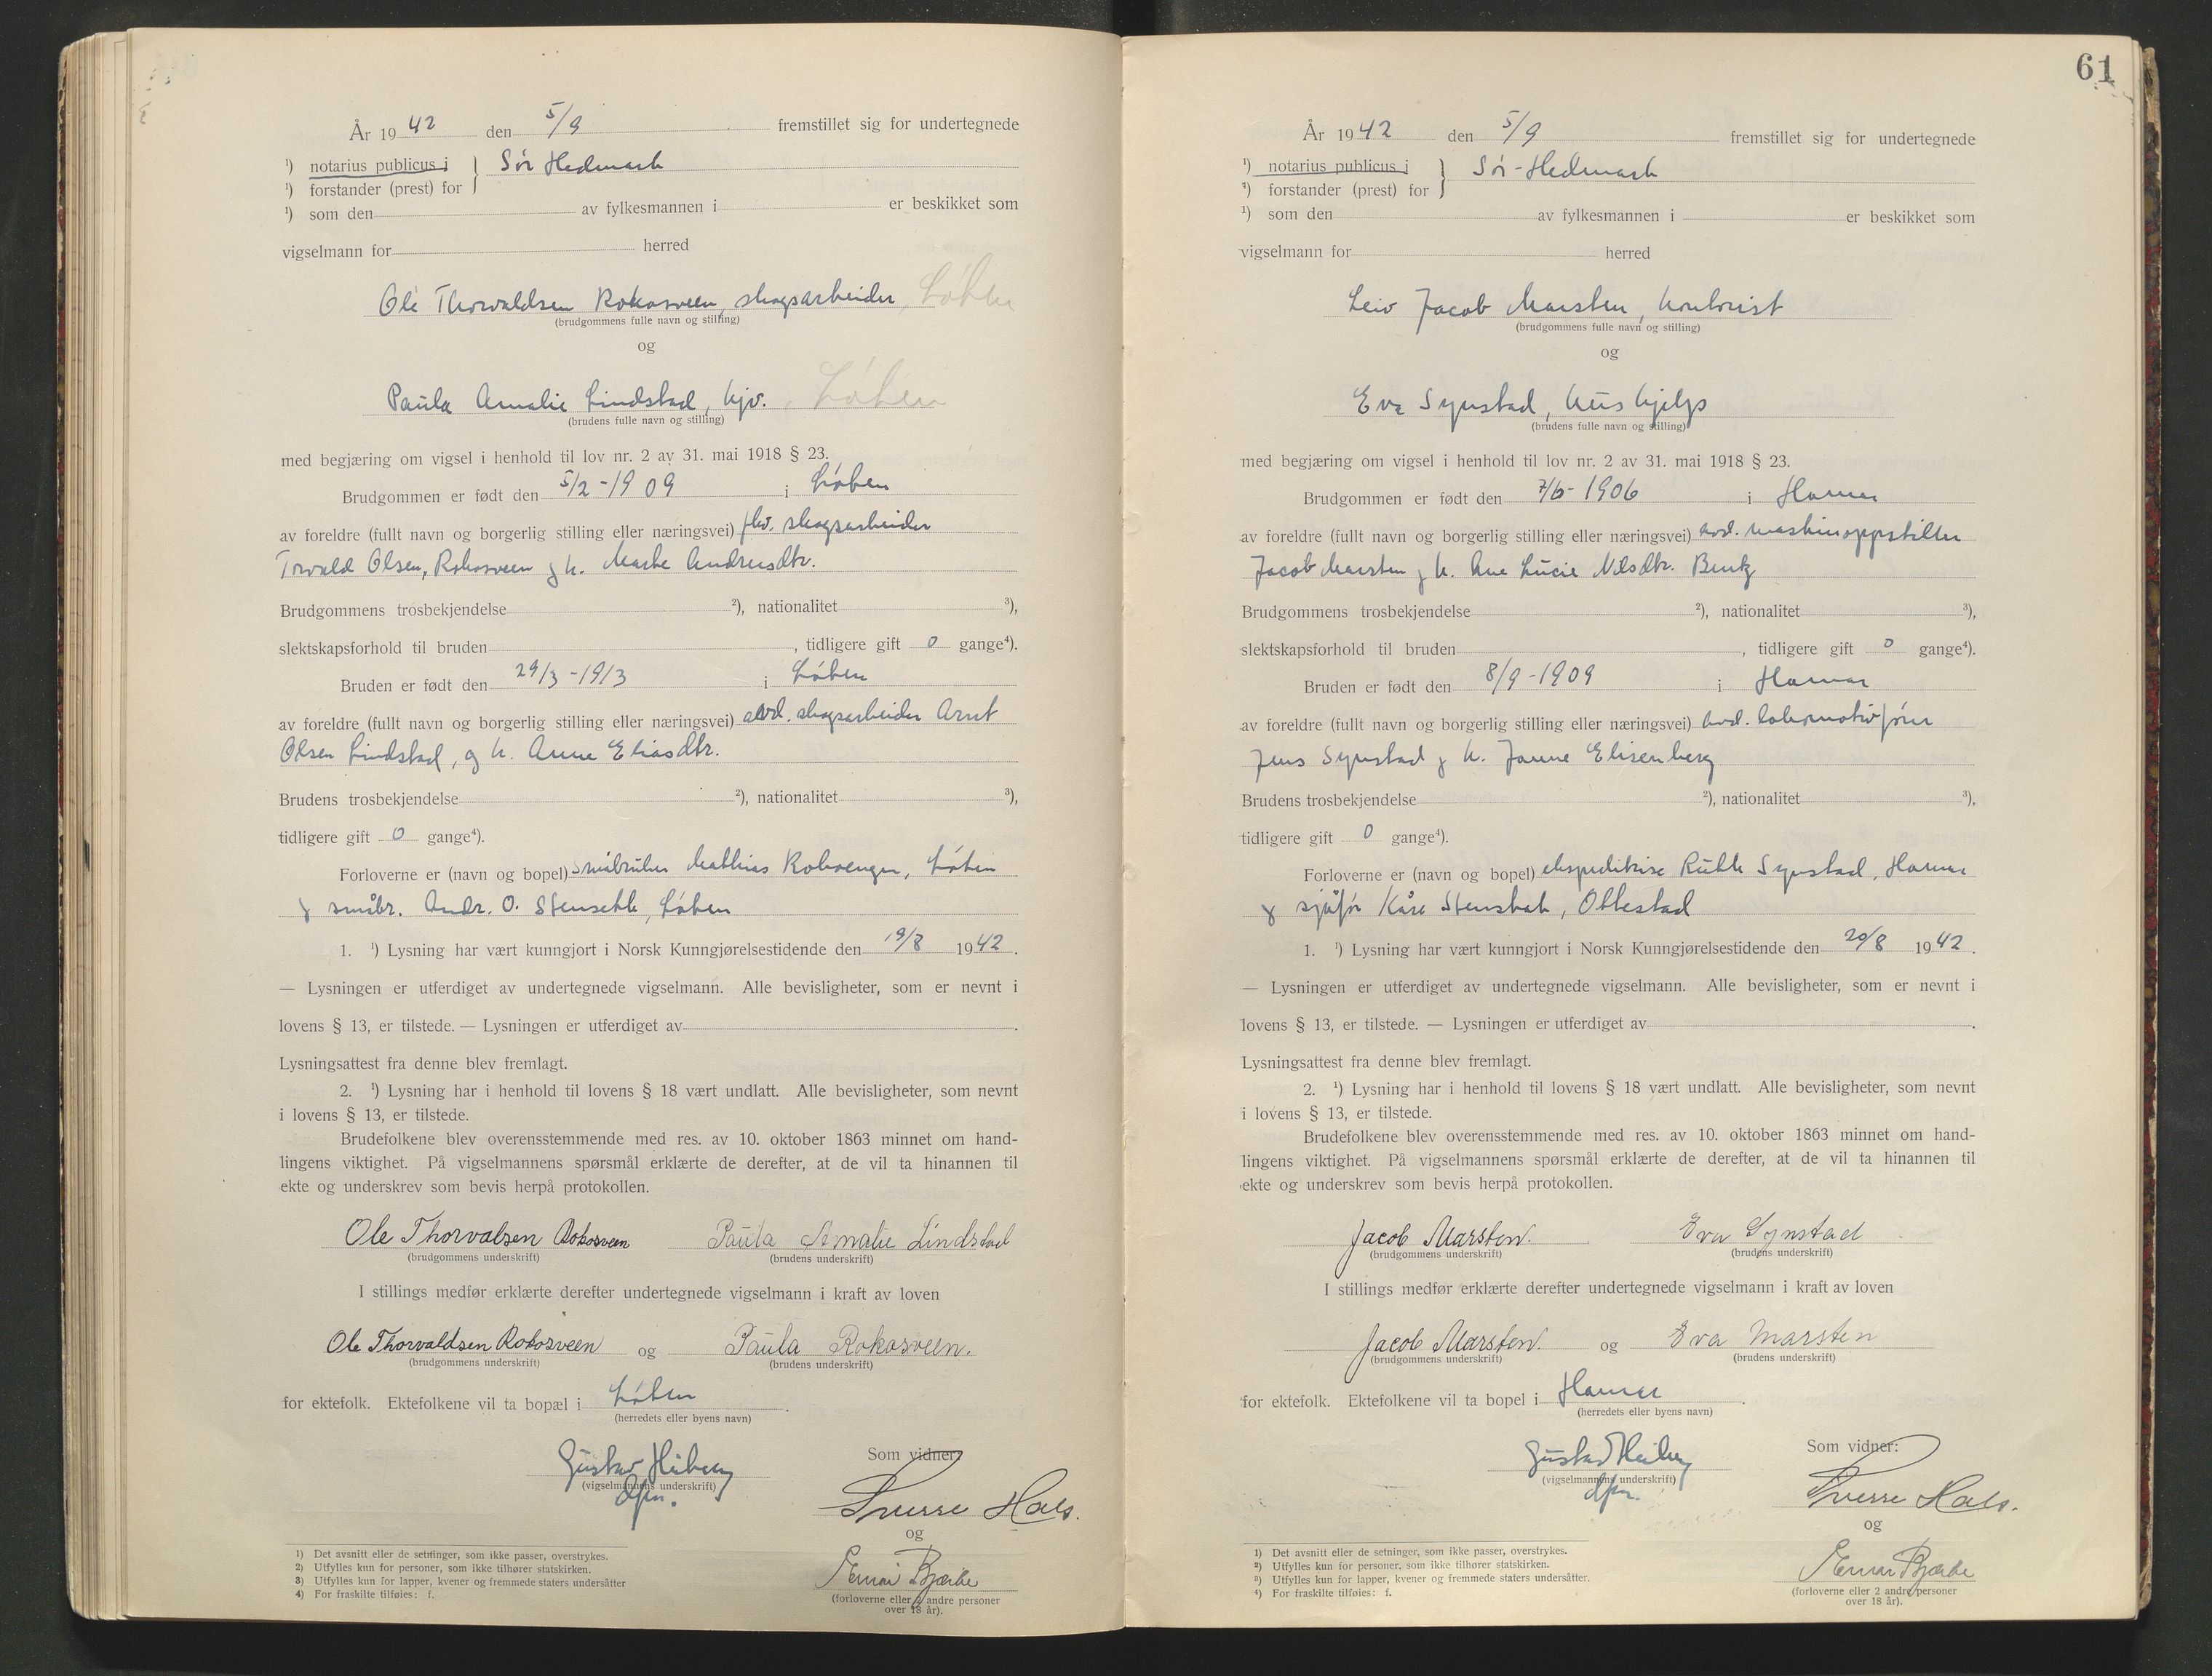 År 1942 den 5/9 fremstillet sig for undertegnede
¹) notarius publicus i } Sør Hedmark
¹) forstander (prest) for
¹) som den av fylkesmannen i er beskikket som
vigselmann for herred
Ole Thorvaldsen Rokosveen, skogsarbeider, Løten
(brudgommens fulle navn og stilling)
og
Paula Amalie Lindstad, hjv. Løten
(brudens fulle navn og stilling)
med begjæring om vigsel i henhold til lov nr. 2 av 31. mai 1918 § 23.
Brudgommen er født den 5/2-1909 i Løten
av foreldre (fullt navn og borgerlig stilling eller næringsvei) fhv. skogsarbeider
Torvald Olsen, Rokosveen og h. Marte Andreasdtr.
Brudgommens trosbekjendelse ²), nationalitet ³),
slektskapsforhold til bruden , tidligere gift 0 gange⁴).
Bruden er født den 29/3-1913 i Løten
av foreldre (fullt navn og borgerlig stilling eller næringsvei) avd. skogsarbeider Arnt
Olsen Lindstad, og h. Anne Eliasdtr.
Brudens trosbekjendelse ²), nationalitet ³),
tidligere gift 0 gange⁴).
Forloverne er (navn og bopel) småbruker Mathias Rokoengen, Løten
og småbr. Andr. O. Stensette, Løten
1. ¹) Lysning har vært kunngjort i Norsk Kunngjørelsestidende den 19/8 1942.
— Lysningen er utferdiget av undertegnede vigselmann. Alle bevisligheter, som er nevnt i
lovens § 13, er tilstede. — Lysningen er utferdiget av .
Lysningsattest fra denne blev fremlagt.
2. ¹) Lysning har i henhold til lovens § 18 vært undlatt. Alle bevisligheter, som nevnt
i lovens § 13, er tilstede.
Brudefolkene blev overensstemmende med res. av 10. oktober 1863 minnet om hand-
lingens viktighet. På vigselmannens spørsmål erklærte de derefter, at de vil ta hinannen til
ekte og underskrev som bevis herpå protokollen.
Ole Thorvalsen Rokosveen Paula Amalie Lindstad
(brudgommens underskrift) (brudens underskrift)
I stillings medfør erklærte derefter undertegnede vigselmann i kraft av loven
Ole Thorvaldsen Rokosveen og Paula Rokosveen.
(brudgommens underskrift) (brudens underskrift)
for ektefolk. Ektefolkene vil ta bopæl i Løten .
(herredets eller byens navn)
Gustav Heiberg
(vigselmannens underskrift)
dfm.
Som vidner:
Sverre Hals.
og
Bjerke
(forloverne eller 2 andre personer
over 18 år).
1) Det avsnitt eller de setninger, som ikke passer, overstrykes.
2) Utfylles kun for personer, som ikke tilhører statskirken.
3) Utfylles kun for lapper, kvener og fremmede staters undersåtter
4) For fraskilte tilføies: f.
61
År 1942 den 5/9 fremstillet sig for undertegnede
¹) notarius publicus i } Sør-Hedmark
¹) forstander (prest) for
¹) som den av fylkesmannen i er beskikket som
vigselmann for herred
Leiv Jacob Marsten, kontorist
(brudgommens fulle navn og stilling)
og
Eva Synstad, hushjelp
(brudens fulle navn og stilling)
med begjæring om vigsel i henhold til lov nr. 2 av 31. mai 1918 § 23.
Brudgommen er født den 7/6-1906 i Hamar
av foreldre (fullt navn og borgerlig stilling eller næringsvei) avd. maskinoppstiller
Jacob Marsten og h. Ane Lucie Nilsdtr. Bentz
Brudgommens trosbekjendelse ²), nationalitet ³),
slektskapsforhold til bruden , tidligere gift 0 gange⁴).
Bruden er født den 8/9-1909 i Hamar
av foreldre (fullt navn og borgerlig stilling eller næringsvei) avd. lokomotivfører
Jens Synstad og h. Janne Elisenberg
Brudens trosbekjendelse ²), nationalitet ³),
tidligere gift 0 gange⁴).
Forloverne er (navn og bopel) ekspeditrise Ruth Synstad, Hamar
og sjåfør Kåre Stenslet, Ottestad
1. ¹) Lysning har vært kunngjort i Norsk Kunngjørelsestidende den 20/8 1942.
— Lysningen er utferdiget av undertegnede vigselmann. Alle bevisligheter, som er nevnt i
lovens § 13, er tilstede. — Lysningen er utferdiget av .
Lysningsattest fra denne blev fremlagt.
2. ¹) Lysning har i henhold til lovens § 18 vært undlatt. Alle bevisligheter, som nevnt
i lovens § 13, er tilstede.
Brudefolkene blev overensstemmende med res. av 10. oktober 1863 minnet om hand-
lingens viktighet. På vigselmannens spørsmål erklærte de derefter, at de vil ta hinannen til
ekte og underskrev som bevis herpå protokollen.
Jacob Marsten. Eva Synstad
(brudgommens underskrift) (brudens underskrift)
I stillings medfør erklærte derefter undertegnede vigselmann i kraft av loven
Jacob Marsten. og Eva Marsten
(brudgommens underskrift) (brudens underskrift)
for ektefolk. Ektefolkene vil ta bopel i Hamar .
(herredets eller byens navn)
Gustav Heiberg
(vigselmannens underskrift)
dfm.
Som vidner:
Sverre Hals.
og
Bjerke
(forloverne eller 2 andre personer
over 18 år).
¹) Det avsnitt eller de setninger, som ikke passer, overstrykes.
²) Utfylles kun for personer, som ikke tilhører statskirken.
³) Utfylles kun for lapper, kvener og fremmede staters undersåtter.
⁴) For fraskilte tilføies: f.